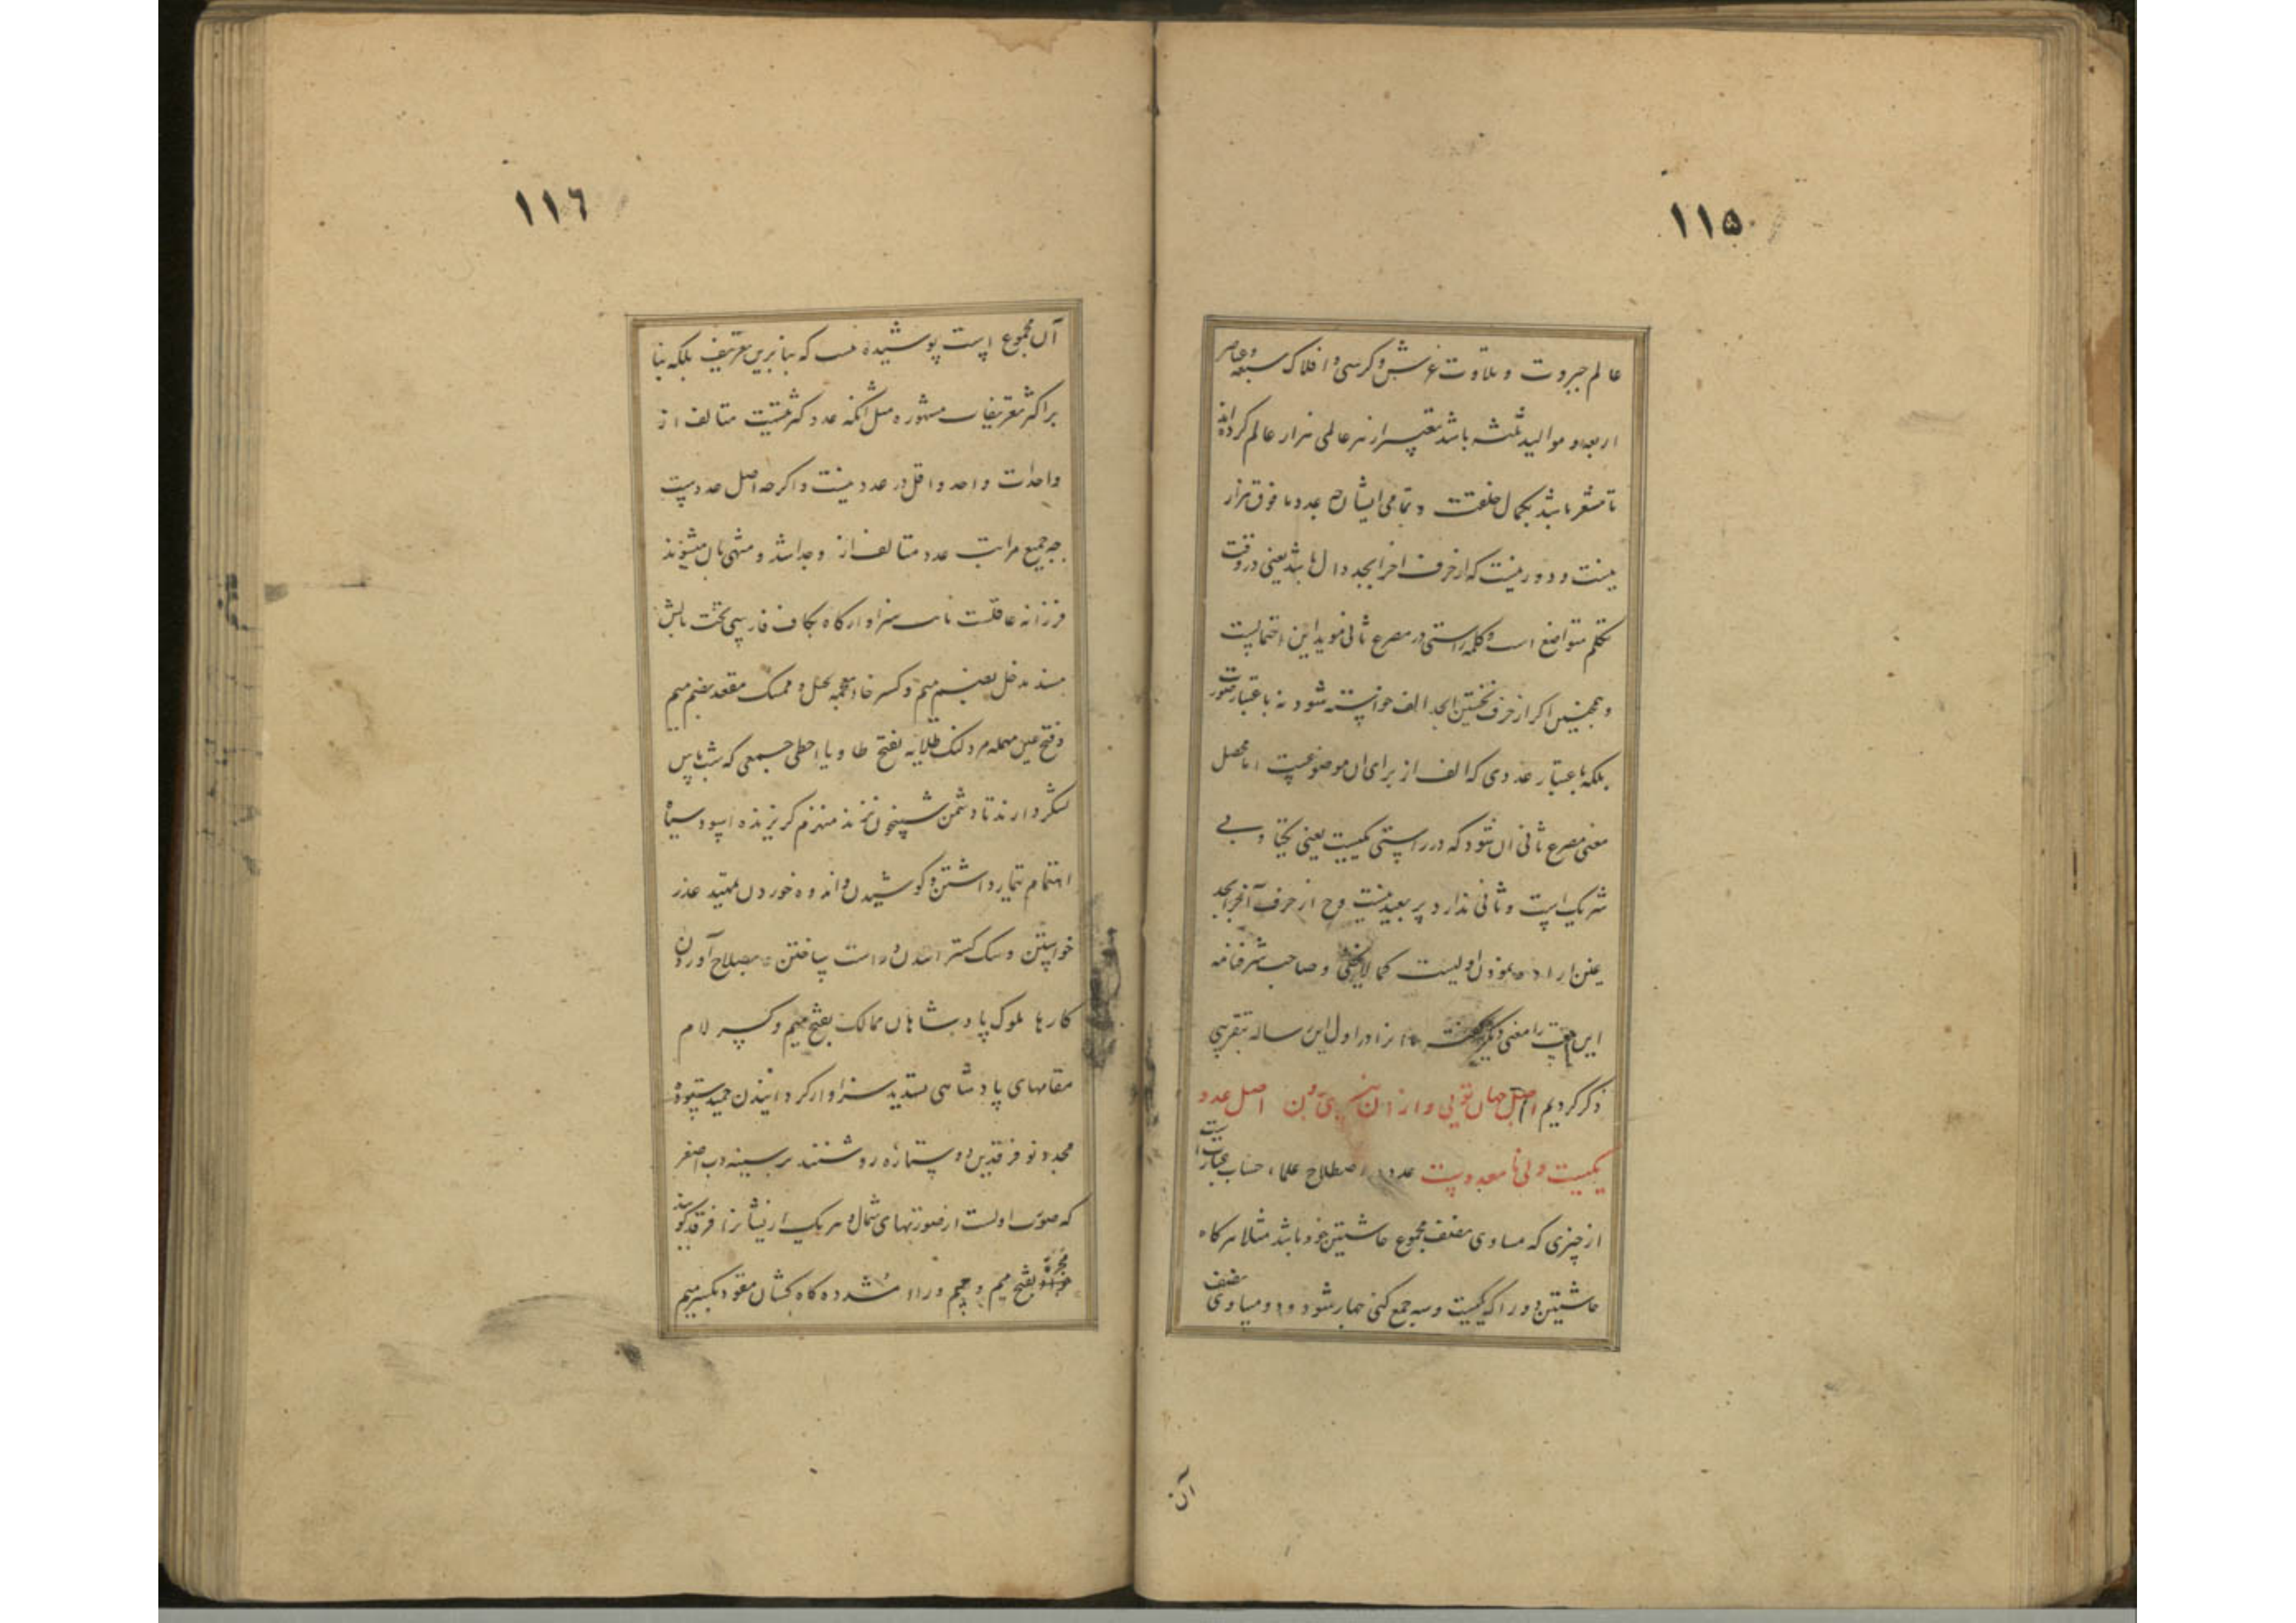 ١١٥
عالم جبروت و ملکوت عرش و کرسی و افلاک سبعه و عناصر
اربعه و موالید ثلثه باشد تعبیر از هر عالمی هزار عالم کرده‌اند
تا مشعر باشد بکمال خلقت و تمامی ایشان چه عدد ما فوق هزار
نیست و دور نیست که از حرف آخر ابجد دال باشد یعنی در وقت
تکلم متواضع است و کلمه راستی در مصرع ثانی موید این احتمالست
و همچنین اگر از حرف نخستین ابجد الف خواسته شود نه باعتبار صورت
بلکه باعتبار عددی که الف از برای آن موضوعست اما محصل
معنی مصرع ثانی آن شود که در راستی یکیست یعنی یکتا و بی
شریک است و ثانی ندارد پر بعید نیست و ح از حرف آخر ابجد
غین اراده نمودن اولیست کما لایخفی و صاحب شرفنامه
این بیت را معنی دیگر در اول این رساله بتقریبی
ذکر کردیم اصل جهان تویی و از آن اصل عدد
یکیست ولی نا معدودست عدد در اصطلاح علماء حساب عبارت است
از چیزی که مساوی نصف مجموع حاشیتین خود باشد مثلا هرگاه
حاشیتین دو را که یکیست و سه جمع کنی چهار شود و دو مساوی نصف
آن
١١٦
آن مجموع است پوشیده نیست که بنا برین تعریف بلکه بنا
بر اکثر تعریفات مشهوره مثل آنکه عدد کثرتیست متالف از
واحدات واحد داخل در عدد نیست و اگرچه اصل عددست
چه جمیع مراتب عدد متالف از وحداتند و منتهی بآن میشوند
فرزانه عاقلست سزاوار گاه بکاف فارسی تخت بالش
مسند مدخل بضم میم و کسر خاء معجمه بخیل و ممسک مقعد بضم میم
و فتح عین مهمله مرد لنگ طلایه بفتح طا و یاء حطی جمعی که شبها پاس
لشکر دارند تا دشمن شبیخون نزند منهزم گریزنده اسود سیاه
اهتمام تیمار داشتن و کوشیدن و اندوه خوردن تمهید عذر
خواستن و گسترانیدن و راست ساختن بصلاح آوردن
کارها ملوک پادشاهان ممالک بفتح میم و کسر لام
مقامهای پادشاهی سزاوار گردانیدن حمید ستوده
مجدد نو فرقدین دو ستاره روشنند بر سینه دب اصغر
که صورت اولست از صورتهای شمال و هر یک از ایشانرا فرقد گویند
مجره بفتح میم و جیم و راء مشدده کاه کشان مقود بکسر میم